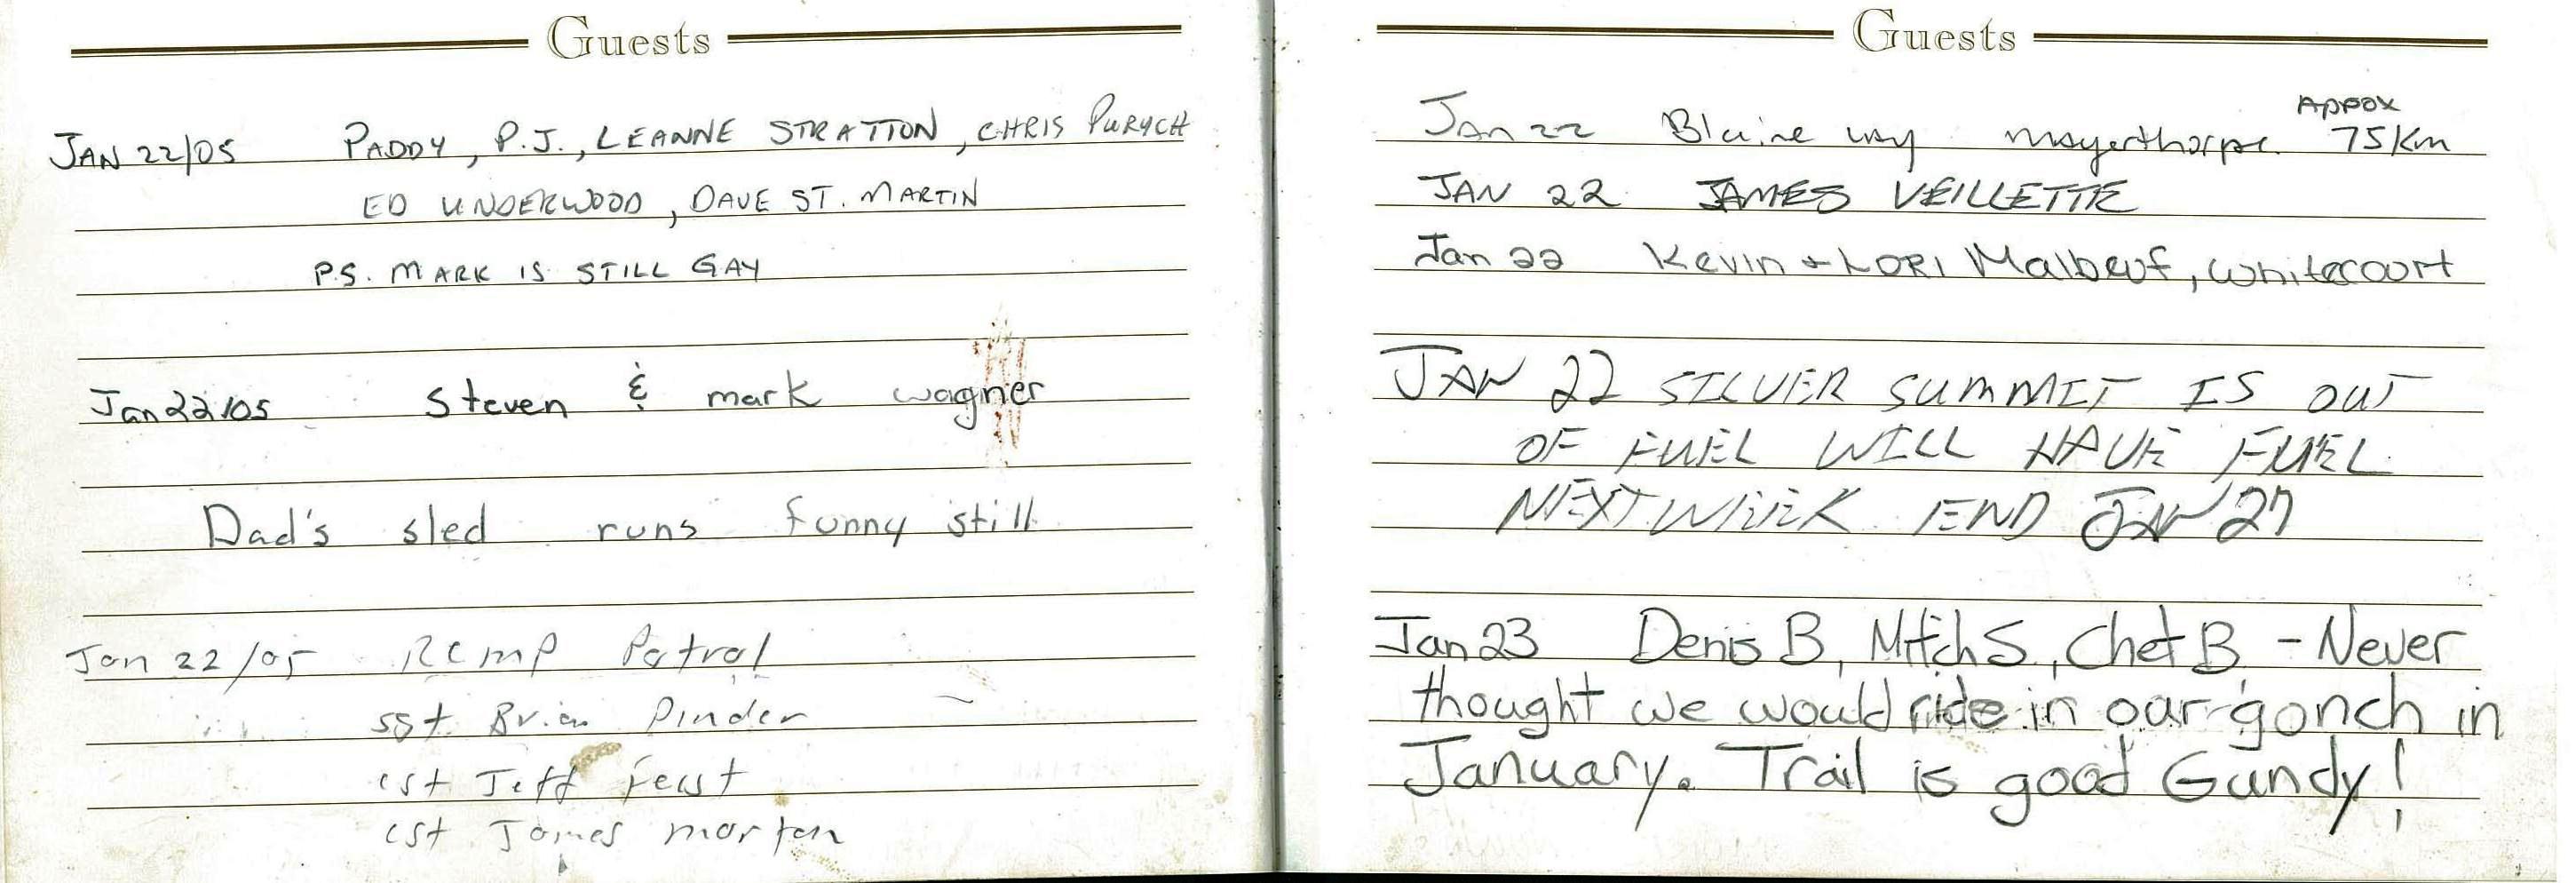 Guests
JAN 22/05 PADDY, P.J., LEANNE STRATTON, CHRIS PURYCH
ED UNDERWOOD, DAVE ST. MARTIN
P.S. MARK IS STILL GAY
Jan 22/05 Steven & mark wagner
Dad's sled runs funny still
Jan 22/05 RCMP Patrol
sgt. Brian Pinder
cst Jeff
cst James morton
Guests
Appox
Jan 22 Blaine Mayerthorpe. 75 Km
JAN 22 JAMES VEILLETTE
Jan 22 Kevin + LORI Malbeuf, Whitecourt
JAN 22 SILVER SUMMIT IS OUT
OF FUEL WILL HAVE FUEL
NEXT WEEK END JAN 27
Jan 23 Denis B, Mitch S, Chet B - Never
thought we would ride in our gonch in
January. Trail is good Gundy!